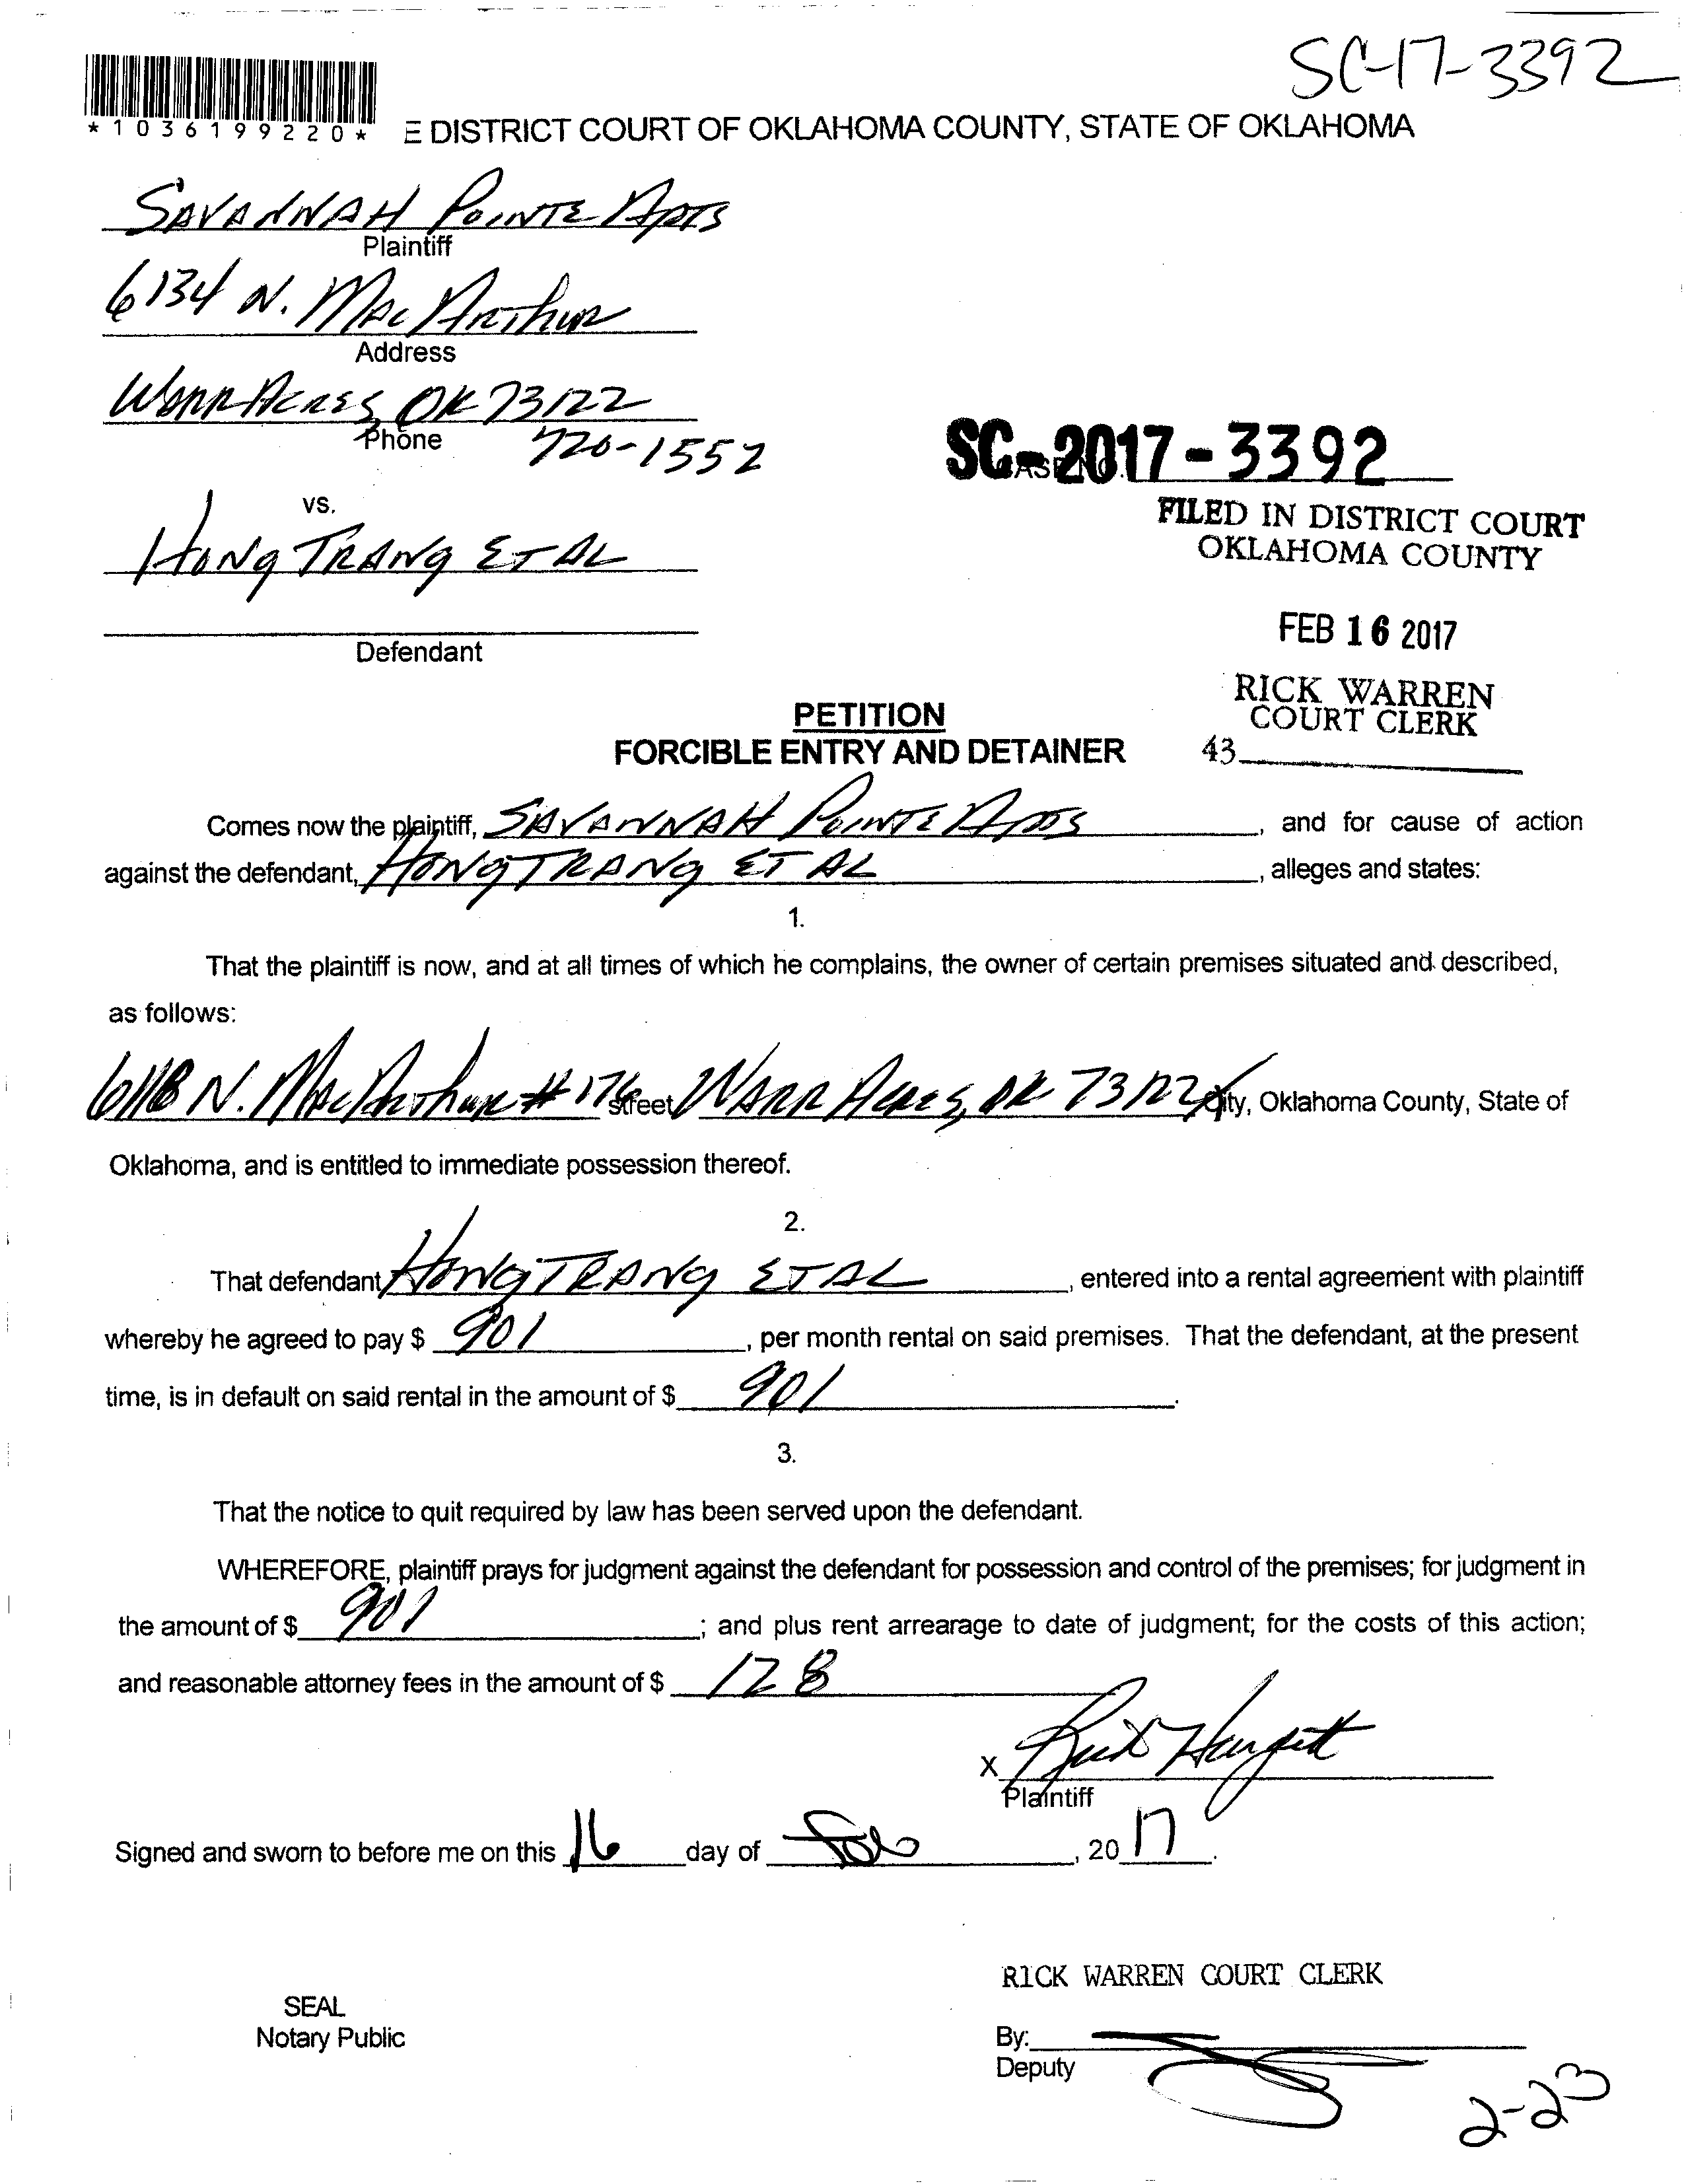 SC-17-3392
*1036199220*
E DISTRICT COURT OF OKLAHOMA COUNTY, STATE OF OKLAHOMA
SAVANNAH POINTE APTS
Plaintiff
6134 N. MacArthur
Address
Warr Acres, OK 73122
Phone 720-1552
SC-2017-3392
vs.
FILED IN DISTRICT COURT
OKLAHOMA COUNTY
HONG TRANG ET AL
FEB 16 2017
Defendant
RICK WARREN
COURT CLERK
43
PETITION
FORCIBLE ENTRY AND DETAINER
Comes now the plaintiff, SAVANNAH POINTE APTS, and for cause of action
against the defendant, HONG TRANG ET AL, alleges and states:
1.
That the plaintiff is now, and at all times of which he complains, the owner of certain premises situated and described,
as follows:
6118 N. MacArthur # 176 street Warr Acres, OK 73122 City, Oklahoma County, State of
Oklahoma, and is entitled to immediate possession thereof.
2.
That defendant HONG TRANG ET AL, entered into a rental agreement with plaintiff
whereby he agreed to pay $ 901, per month rental on said premises. That the defendant, at the present
time, is in default on said rental in the amount of $ 901.
3.
That the notice to quit required by law has been served upon the defendant.
WHEREFORE, plaintiff prays for judgment against the defendant for possession and control of the premises; for judgment in
the amount of $ 901; and plus rent arrearage to date of judgment; for the costs of this action;
and reasonable attorney fees in the amount of $ 128
X
Plaintiff
Signed and sworn to before me on this 16 day of Feb, 20 17.
RICK WARREN COURT CLERK
SEAL
Notary Public
By:
Deputy
2-23